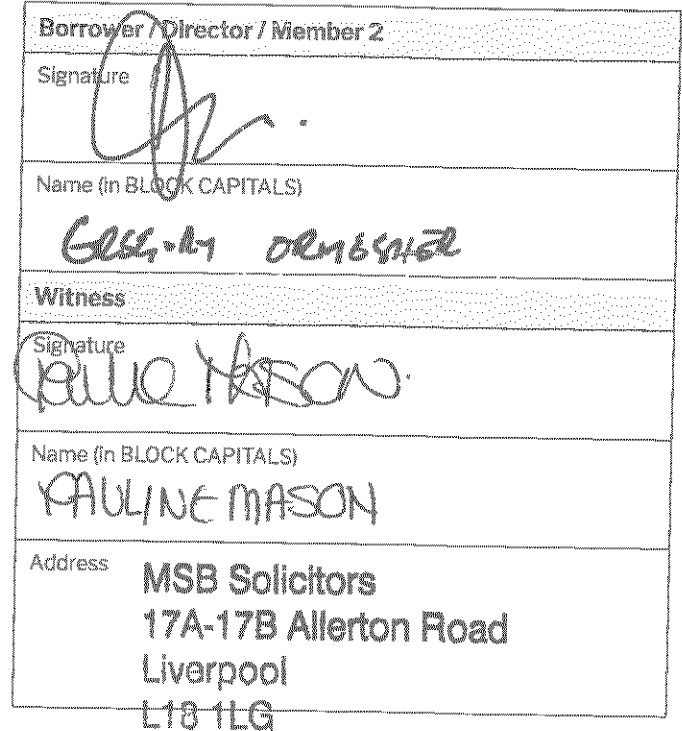 Borrower / Director / Member 2
Signature
Name (in BLOCK CAPITALS)
GREGORY ORMESHER
Witness
Signature
Pauline MASON
Name (in BLOCK CAPITALS)
PAULINE MASON
Address
MSB Solicitors
17A-17B Allerton Road
Liverpool
L18 1LG